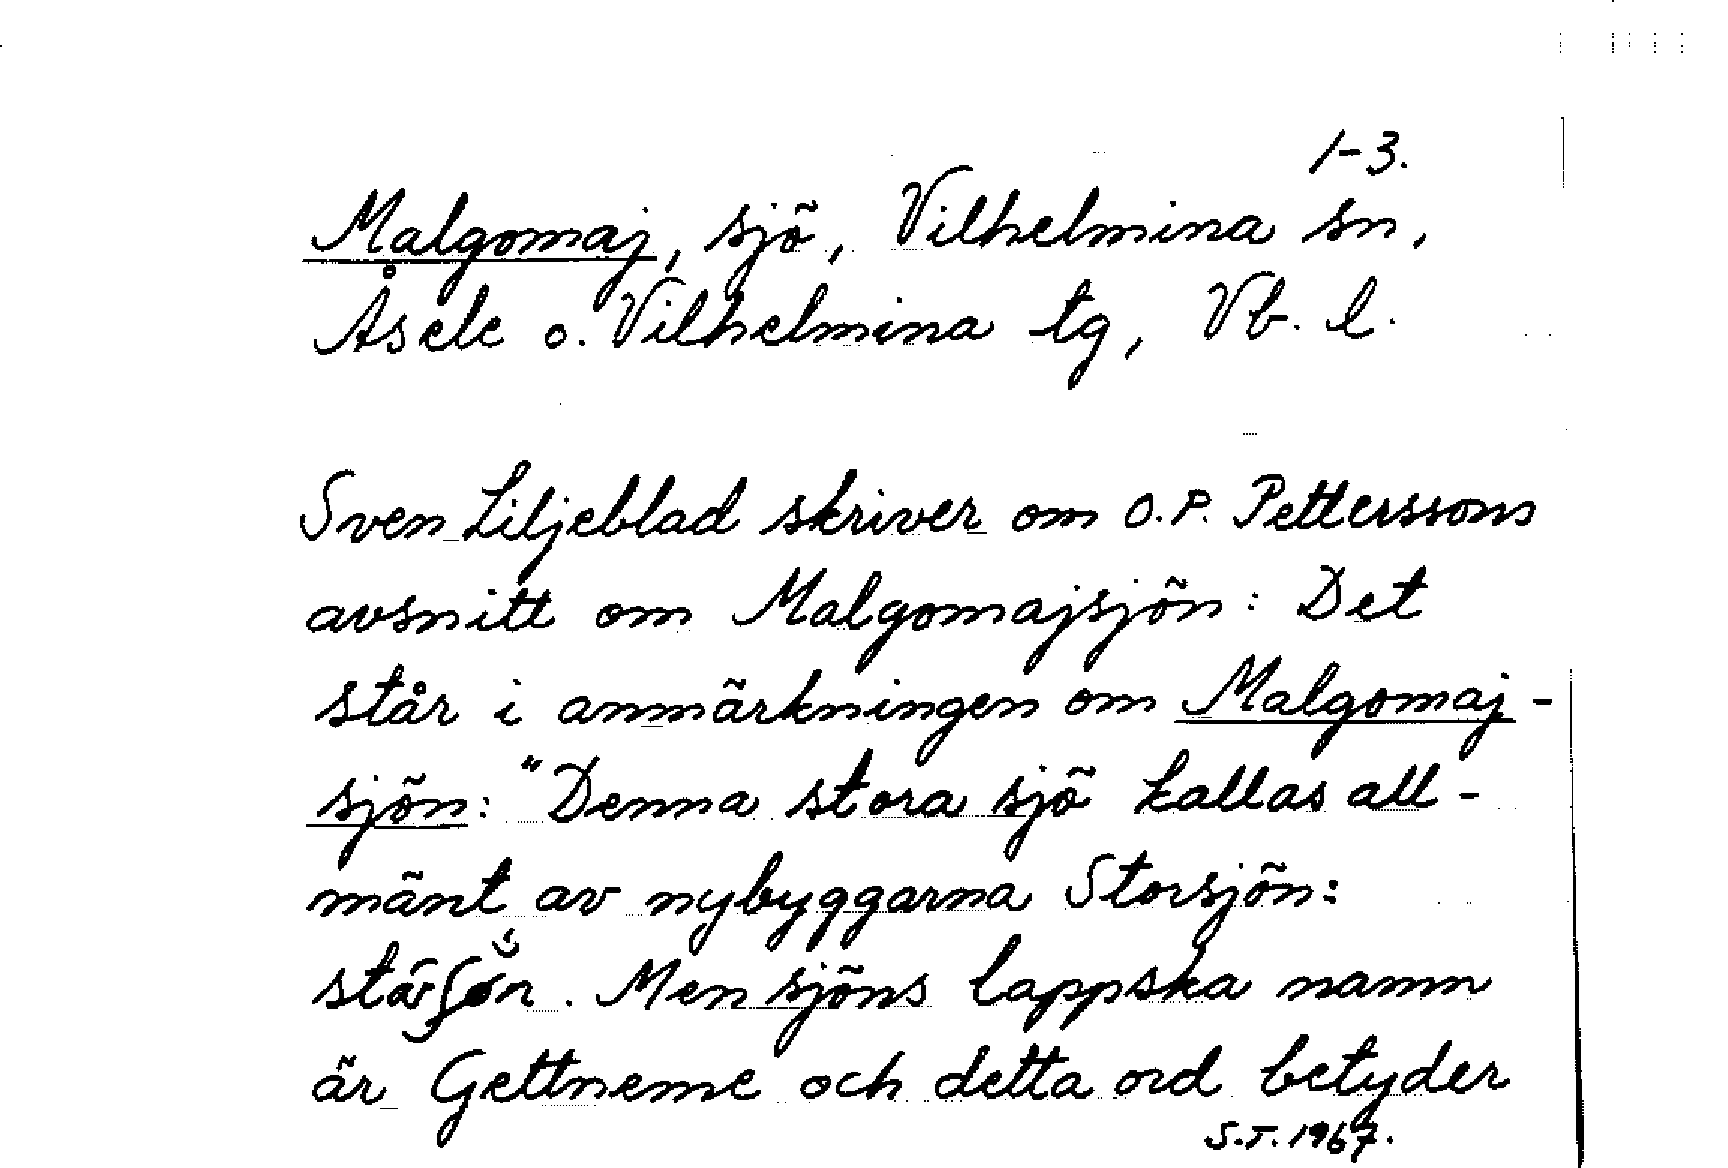 1-3.
Malgomaj, sjö, Vilhelmina sn,
Åsele o. Vilhelmina tg, Vb. l.
Sven Liljeblad skriver om O.P. Petterssons
avsnitt om Malgomajsjön: Det
står i anmärkningen om Malgomaj-
sjön: "Denna stora sjö kallas all-
mänt av nybyggarna Storsjön:
. Men sjöns lappska namn
är Gettneme och detta ord betyder
S.T. 1967.